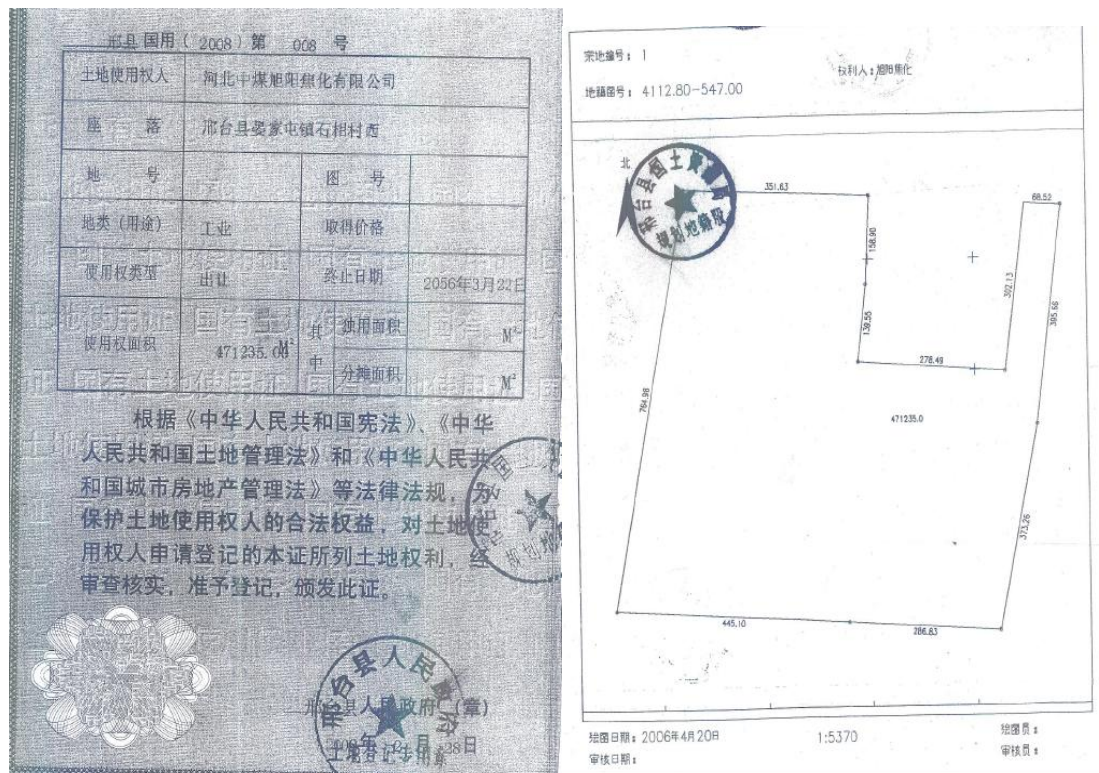 邢县国用(2008)第 008 号
土地使用权人 河北中煤旭阳焦化有限公司
座 落 邢台县晏家屯镇石相村西
地 号 图 号
地类(用途) 工业 取得价格
使用权类型 出让 终止日期 2056年3月22日
使用权面积 471235.00M² 其中 独用面积 M²
分摊面积 M²
根据《中华人民共和国宪法》、《中华
人民共和国土地管理法》和《中华人民共
和国城市房地产管理法》等法律法规,为
保护土地使用权人的合法权益,对土地使
用权人申请登记的本证所列土地权利,经
审查核实,准予登记,颁发此证。
邢台县人民政府
邢台县人民政府(章)
年 月 28日
土地登记专用章
宗地编号: 1
权利人: 旭阳焦化
地籍图号: 4112.80-547.00
北
邢台县国土资源局
规划地籍股
351.63
68.52
158.90
302.13
395.66
139.55
278.49
764.98
471235.0
373.26
445.10
286.83
绘图日期: 2006年4月20日
1:5370
绘图员:
审核日期:
审核员: